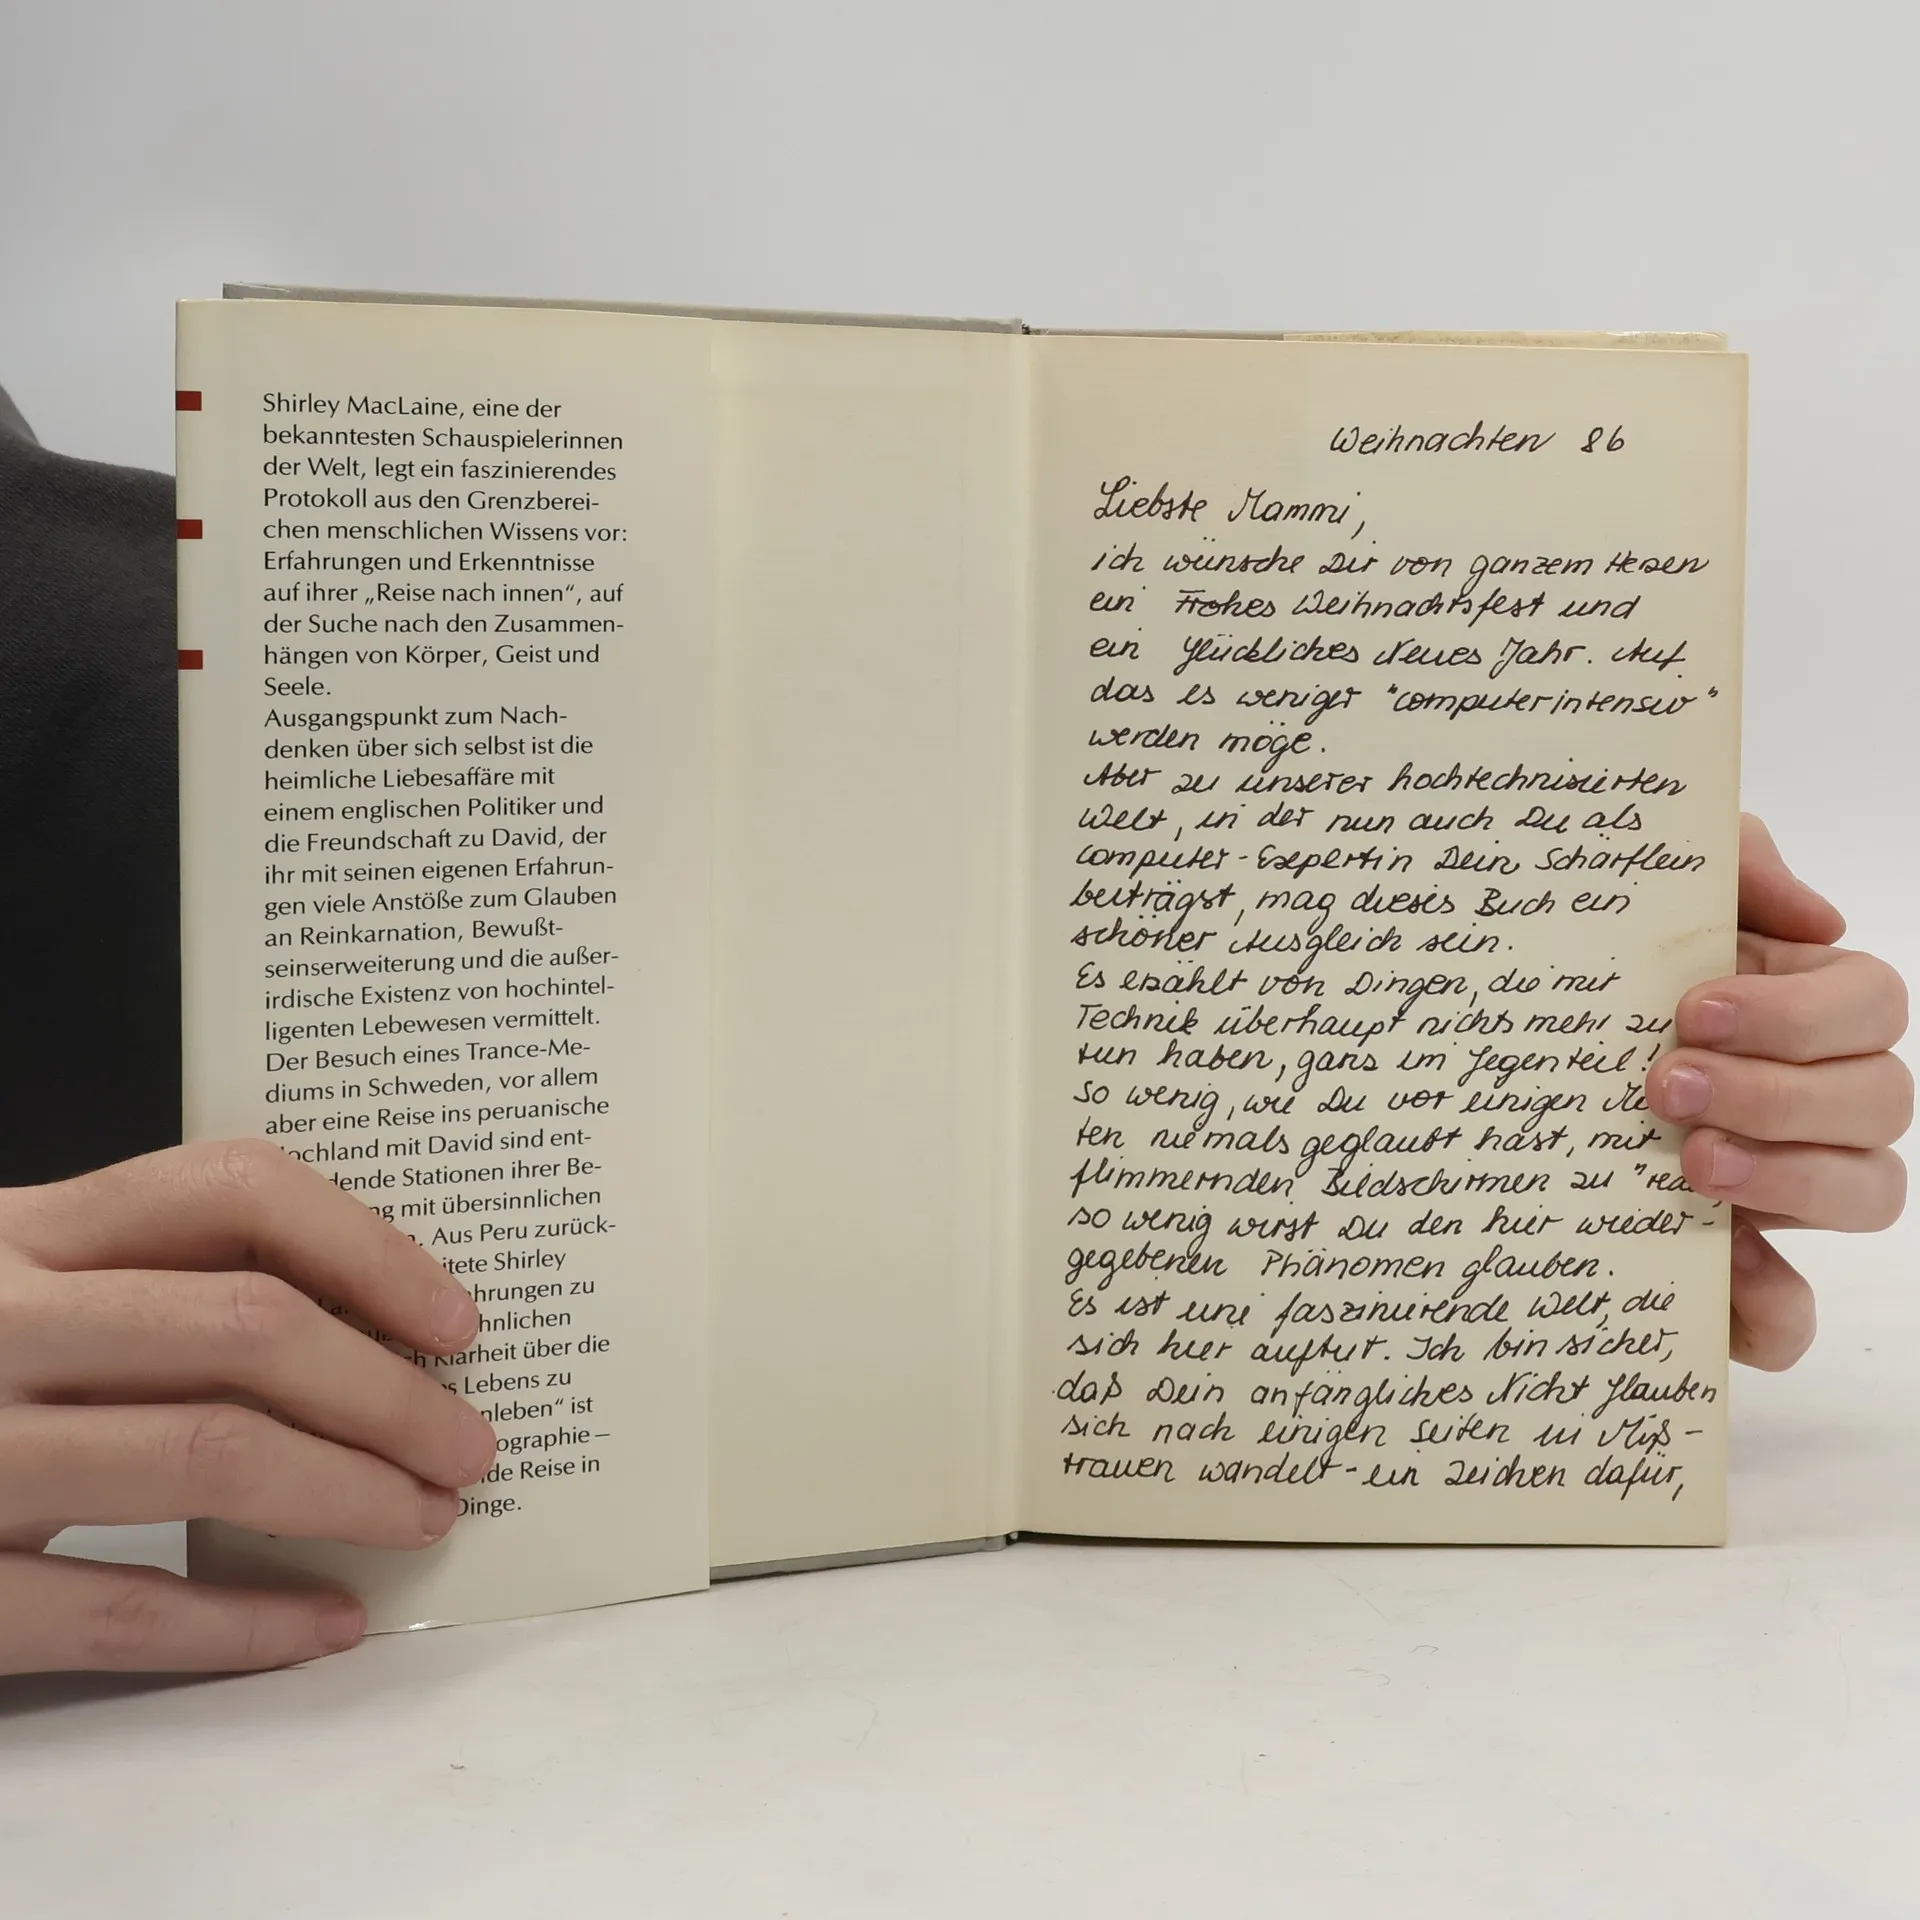 Shirley MacLaine, eine der
bekanntesten Schauspielerinnen
der Welt, legt ein faszinierendes
Protokoll aus den Grenzberei-
chen menschlichen Wissens vor:
Erfahrungen und Erkenntnisse
auf ihrer „Reise nach innen“, auf
der Suche nach den Zusammen-
hängen von Körper, Geist und
Seele.
Ausgangspunkt zum Nach-
denken über sich selbst ist die
heimliche Liebesaffäre mit
einem englischen Politiker und
die Freundschaft zu David, der
ihr mit seinen eigenen Erfahrun-
gen viele Anstöße zum Glauben
an Reinkarnation, Bewußt-
seinserweiterung und die außer-
irdische Existenz von hochintel-
ligenten Lebewesen vermittelt.
Der Besuch eines Trance-Me-
diums in Schweden, vor allem
aber eine Reise ins peruanische
ochland mit David sind ent-
dende Stationen ihrer Be-
ng mit übersinnlichen
Aus Peru zurück-
itete Shirley
hrungen zu
hnlichen
Klarheit über die
s Lebens zu
nleben“ ist
ographie –
de Reise in
Dinge.
Weihnachten 86
Liebste Mammi,
ich wünsche Dir von ganzem Herzen
ein Frohes Weihnachtsfest und
ein glückliches Neues Jahr. Auf
das es weniger "computerintensiv"
werden möge.
Aber zu unserer hochtechnisierten
Welt, in der nun auch Du als
Computer-Expertin Dein Schärflein
beiträgst, mag dieses Buch ein
schöner Ausgleich sein.
Es erzählt von Dingen, die mit
Technik überhaupt nichts mehr zu
tun haben, ganz im Gegenteil!
So wenig, wie Du vor einigen Mo
ten niemals geglaubt hast, mit
flimmernden Bildschirmen zu "red
so wenig wirst Du den hier wieder-
gegebenen Phänomen glauben.
Es ist eine faszinierende Welt, die
sich hier auftut. Ich bin sicher,
daß Dein anfängliches Nicht Glauben
sich nach einigen Seiten in Miß-
trauen wandelt - ein Zeichen dafür,